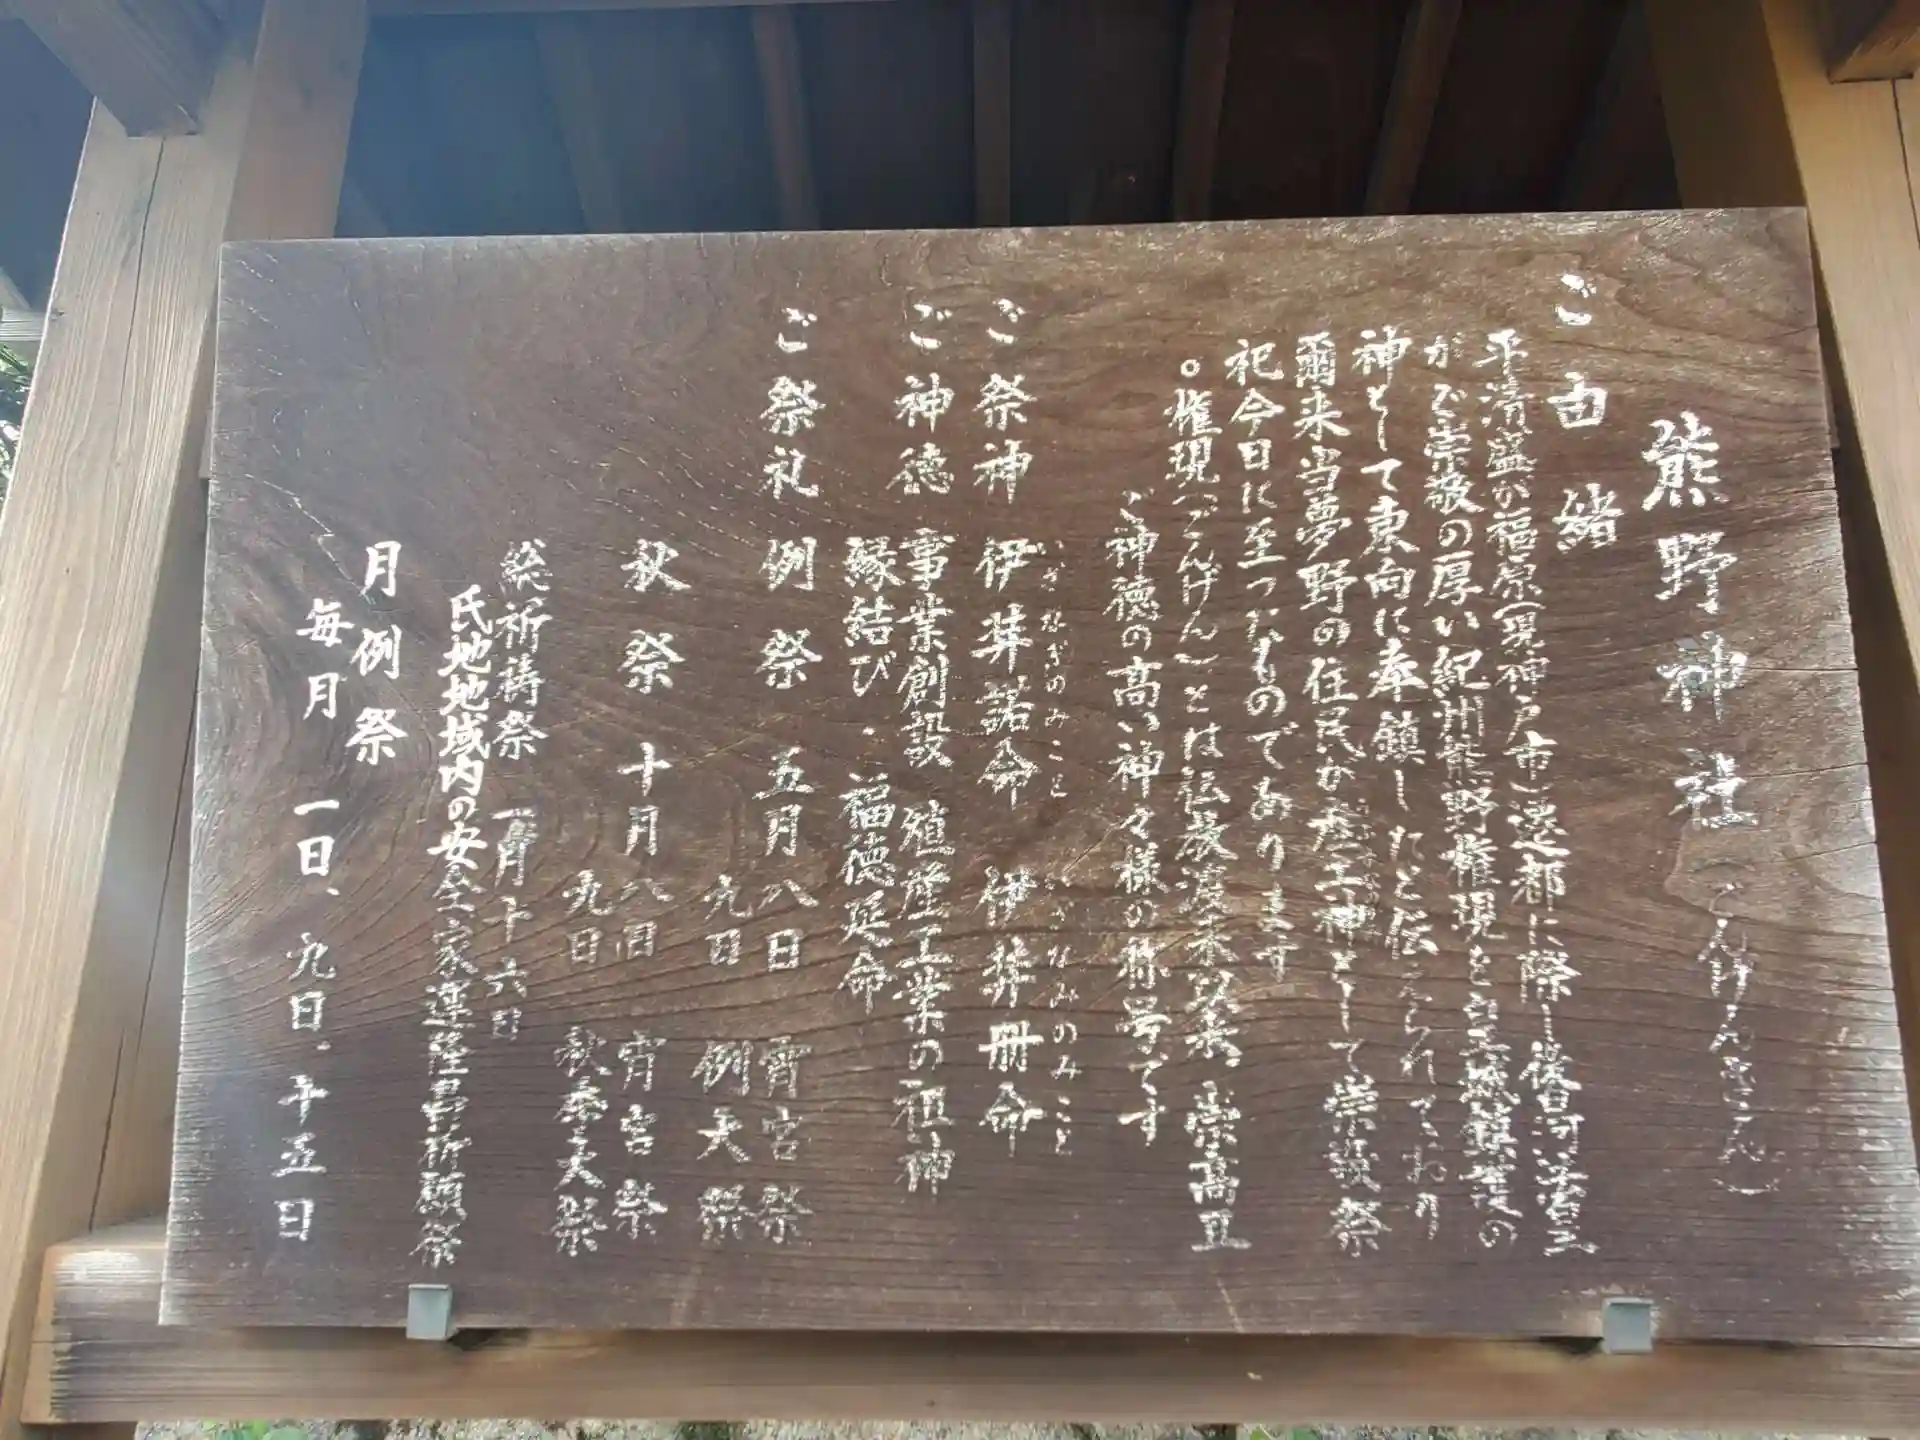 熊野神社（ごんげんさん）
ご由緒
平清盛が福原（現神戸市）遷都に際し後白河法皇
がご崇敬の厚い紀州熊野権現を皇城鎮護の
神として東向に奉鎮したと伝えられており
爾来当夢野の住民が産土神として崇敬祭
祀今日に至ったものであります
○権現（ごんげん）とは仏教渡来以来、崇高且
ご神徳の高い神々様の称号です
いざなぎのみこと いざなみのみこと
ご祭神 伊弉諾命 伊弉冊命
ご神徳 事業創設 殖産工業の祖神
縁結び・福徳延命
ご祭礼 例祭 五月八日 宵宮祭
九日 例大祭
秋祭 十月八日 宵宮祭
九日 秋季大祭
総祈祷祭 月十六日
氏地地域内の安全家運隆昌祈願祭
月例祭
毎月 一日、九日、十五日